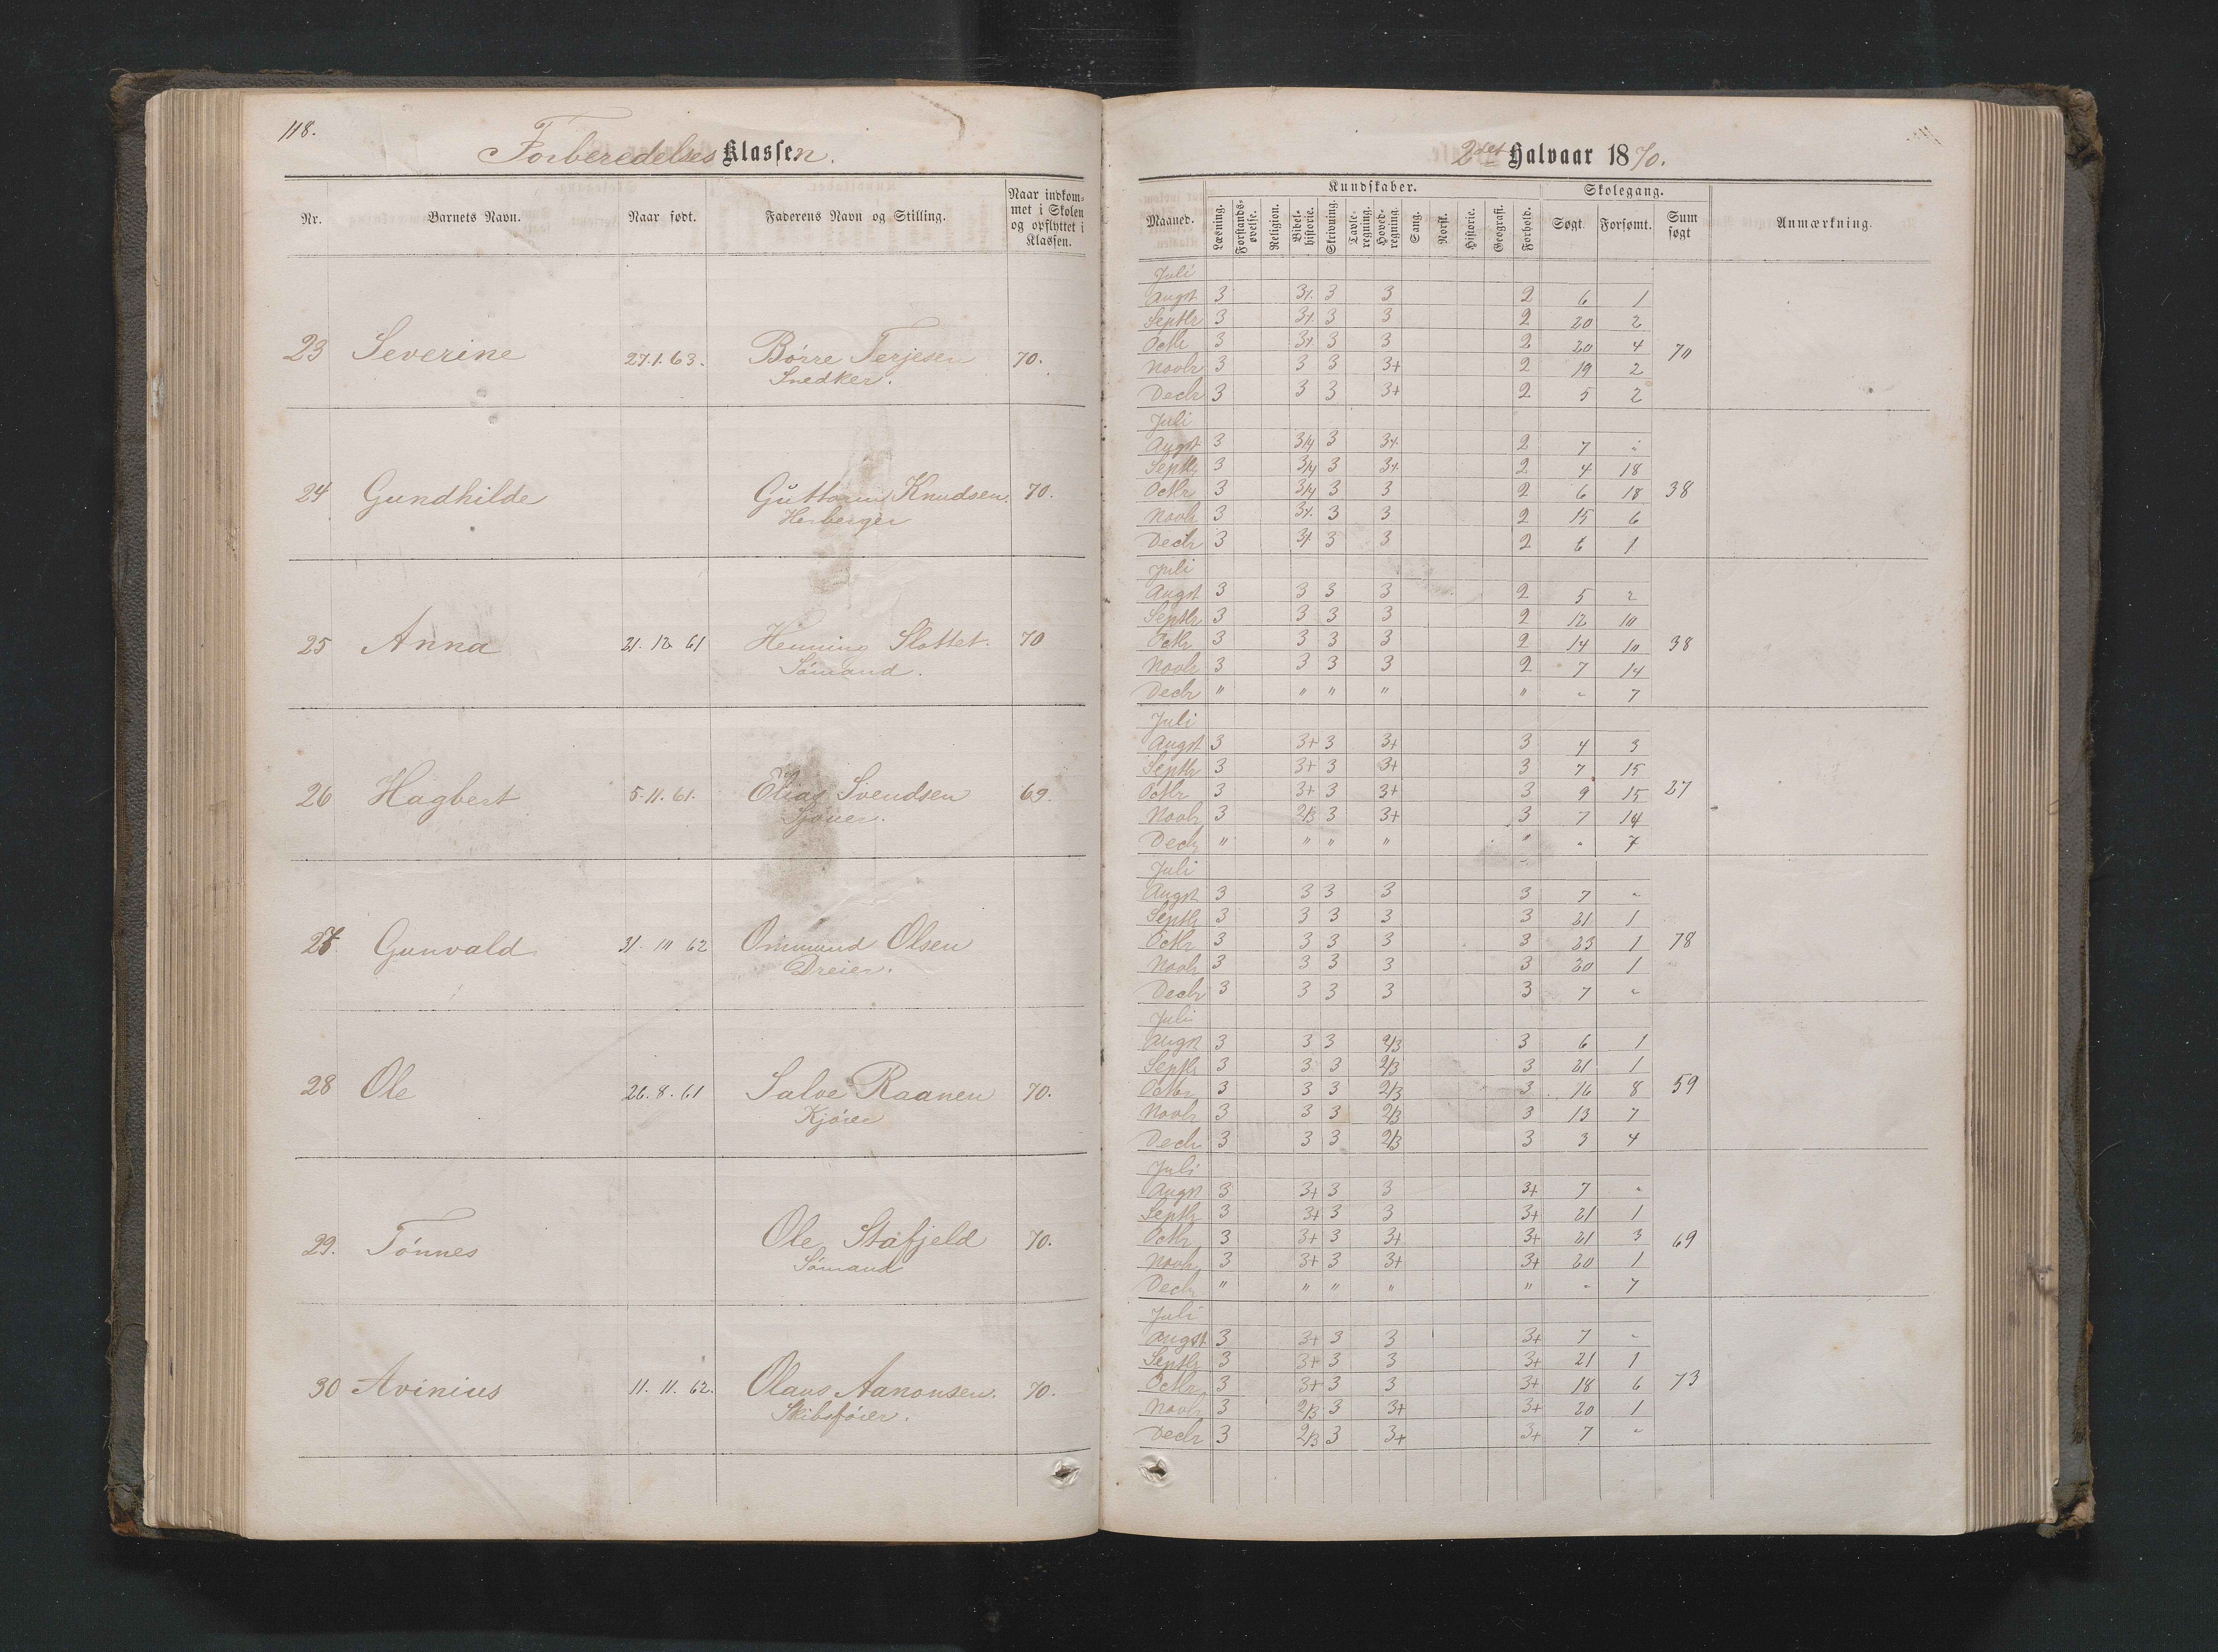 118.
Forberedelses Klassen.
Nr. Barnets Navn. Naar født. Faderens Navn og Stilling. Naar indkommet i Skolen og opflyttet i Klassen.
23 Severine 27.1.63. Børre Terjesen 70.
Snedker.
24 Gundhilde Guttorm Knudsen 70.
Herberger
25 Anna 21. 12 61 Henning Slottet. 70
Sømand.
26 Hagbert 5. 11. 61. Elias Svendsen 69.
27 Gunvald 31. 10 62 Ommund Olsen
Dreier.
28 Ole 26. 8. 61 Salve Raanen 70.
Kjører
29. Tönnes Ole Stafjeld 70.
Sømand
30 Avinius 11. 11. 62. Olaus Aanonsen. 70.
Skibsfører.
2det Halvaar 1870.
Maaned. Kundskaber. Skolegang. Sum søgt Anmærkning.
Læsning. Forstandsøvelse. Religion. Bibelhistorie. Skrivning. Tavleregning. Hovedregning. Sang. Norsk. Historie. Geografi. Forhold. Søgt. Forsømt.
Juli
Augst 3 3/. 3 3 2 6 1
Septbr 3 3/. 3 3 2 20 2
Octbr 3 3/. 3 3 2 20 4 70
Novbr 3 3 3 3+ 2 19 2
Decbr 3 3 3 3+ 2 5 2
Juli
Augst 3 3/4 3 3/. 2 7 "
Septbr 3 3/4 3 3/. 2 4 18
Octbr 3 3/4 3 3 2 6 18 38
Novbr 3 3/. 3 3 2 15 6
Decbr 3 3/. 3 3 2 6 1
Juli
Augst 3 3 3 3 2 5 2
Septbr 3 3 3 3 2 12 10
Octbr 3 3 3 3 2 14 10 38
Novbr 3 3 3 3 2 7 14
Decbr " " " " " " 7
Juli
Augst 3 3+ 3 3+ 3 4 3
Septbr 3 3+ 3 3+ 3 7 15
Octbr 3 3+ 3 3+ 3 9 15 27
Novbr 3 2/3 3 3+ 3 7 14
Decbr " " " " " " 7
Juli
Augst 3 3 3 3 3 7 "
Septbr 3 3 3 3 3 21 1
Octbr 3 3 3 3 3 23 1 78
Novbr 3 3 3 3 3 20 1
Decbr 3 3 3 3 3 7 "
Juli
Augst 3 3 3 2/3 3 6 1
Septbr 3 3 3 2/3 3 21 1
Octbr 3 3 3 2/3 3 16 8 59
Novbr 3 3 3 2/3 3 13 7
Decbr 3 3 3 2/3 3 3 4
Juli
Augst 3 3+ 3 3 3+ 7 "
Septbr 3 3+ 3 3 3+ 21 1
Octbr 3 3+ 3 3+ 3+ 21 3 69
Novbr 3 3+ 3 3+ 3+ 20 1
Decbr " " " " " " 7
Juli
Augst 3 3+ 3 3 3+ 7 "
Septbr 3 3+ 3 3 3+ 21 1
Octbr 3 3+ 3 3 3+ 18 6 73
Novbr 3 2/3 3 3+ 3+ 20 1
Decbr 3 2/3 3 3+ 3+ 7 "